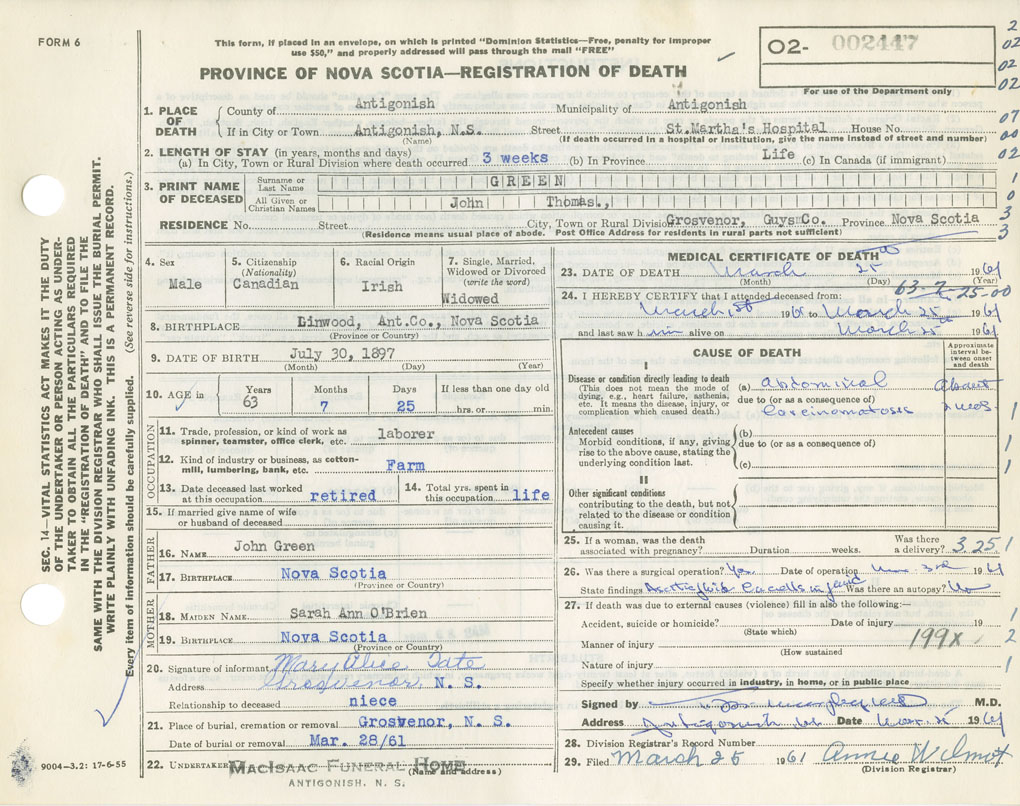 FORM 6
This form, if placed in an envelope, on which is printed "Dominion Statistics—Free, penalty for improper
use $50," and properly addressed will pass through the mail "FREE"
PROVINCE OF NOVA SCOTIA—REGISTRATION OF DEATH
O2- 002447
For use of the Department only
2
02
02
02
07
00
02
1
0
3
3
SEC. 14—VITAL STATISTICS ACT MAKES IT THE DUTY
OF THE UNDERTAKER OR PERSON ACTING AS UNDER-
TAKER TO OBTAIN ALL THE PARTICULARS REQUIRED
IN THE "REGISTRATION OF DEATH" AND TO FILE THE
SAME WITH THE DIVISION REGISTRAR WHO SHALL ISSUE THE BURIAL PERMIT.
WRITE PLAINLY WITH UNFADING INK. THIS IS A PERMANENT RECORD.
Every item of information should be carefully supplied. (See reverse side for instructions.)
1. PLACE OF DEATH
County of Antigonish Municipality of Antigonish
If in City or Town Antigonish, N.S. Street St.Martha's Hospital House No.
(Name) (If death occurred in a hospital or institution, give the name instead of street and number)
2. LENGTH OF STAY (in years, months and days)
(a) In City, Town or Rural Division where death occurred 3 weeks (b) In Province Life (c) In Canada (if immigrant)
3. PRINT NAME OF DECEASED
Surname or Last Name GREEN
All Given or Christian Names John Thomas.,
RESIDENCE No. Street City, Town or Rural Division Grosvenor, Guys Co. Province Nova Scotia
(Residence means usual place of abode. Post Office Address for residents in rural parts not sufficient)
4. Sex Male
5. Citizenship (Nationality) Canadian
6. Racial Origin Irish
7. Single, Married, Widowed or Divorced (write the word) Widowed
8. BIRTHPLACE Linwood, Ant.Co., Nova Scotia
(Province or Country)
9. DATE OF BIRTH July 30, 1897
(Month) (Day) (Year)
10. AGE in Years 63 Months 7 Days 25 If less than one day old
hrs. or min.
OCCUPATION
11. Trade, profession, or kind of work as
spinner, teamster, office clerk, etc. laborer
12. Kind of industry or business, as cotton-
mill, lumbering, bank, etc. Farm
13. Date deceased last worked
at this occupation retired
14. Total yrs. spent in
this occupation life
15. If married give name of wife
or husband of deceased
FATHER
16. NAME John Green
17. BIRTHPLACE Nova Scotia
(Province or Country)
MOTHER
18. MAIDEN NAME Sarah Ann O'Brien
19. BIRTHPLACE Nova Scotia
(Province or Country)
20. Signature of informant Mary Alice Tate
Address Grosvenor, N. S.
Relationship to deceased niece
21. Place of burial, cremation or removal Grosvenor, N. S.
Date of burial or removal Mar. 28/61
22. UNDERTAKER MACISAAC FUNERAL HOME
(Name and address)
ANTIGONISH, N. S.
9004—3.2: 17-6-55
MEDICAL CERTIFICATE OF DEATH
23. DATE OF DEATH March 25 1961
(Month) (Day) (Year)
63-7-25-00
24. I HEREBY CERTIFY that I attended deceased from:
March 1st 1961 to March 25th 1961
and last saw him alive on March 25th 1961
CAUSE OF DEATH
Approximate interval between onset and death
I
Disease or condition directly leading to death
(This does not mean the mode of
dying, e.g., heart failure, asthenia,
etc. It means the disease, injury, or
complication which caused death.)
(a) abdominal
due to (or as a consequence of)
carcinomatosis
about
1
Antecedent causes
Morbid conditions, if any, giving
rise to the above cause, stating the
underlying condition last.
(b)
due to (or as a consequence of)
(c)
1
1
II
Other significant conditions
contributing to the death, but not
related to the disease or condition
causing it.
25. If a woman, was the death
associated with pregnancy? Duration weeks. Was there
a delivery? 3.25 1
26. Was there a surgical operation? Yes Date of operation 3rd 1961
State findings Was there an autopsy? No
27. If death was due to external causes (violence) fill in also the following:—
Accident, suicide or homicide? Date of injury 19 1
(State which)
Manner of injury 199X 2
(How sustained
Nature of injury 1
Specify whether injury occurred in industry, in home, or in public place
Signed by M.D.
Address Antigonish Date Mar. 1961
28. Division Registrar's Record Number
29. Filed March 25 1961 Annie Wilmot
(Division Registrar)